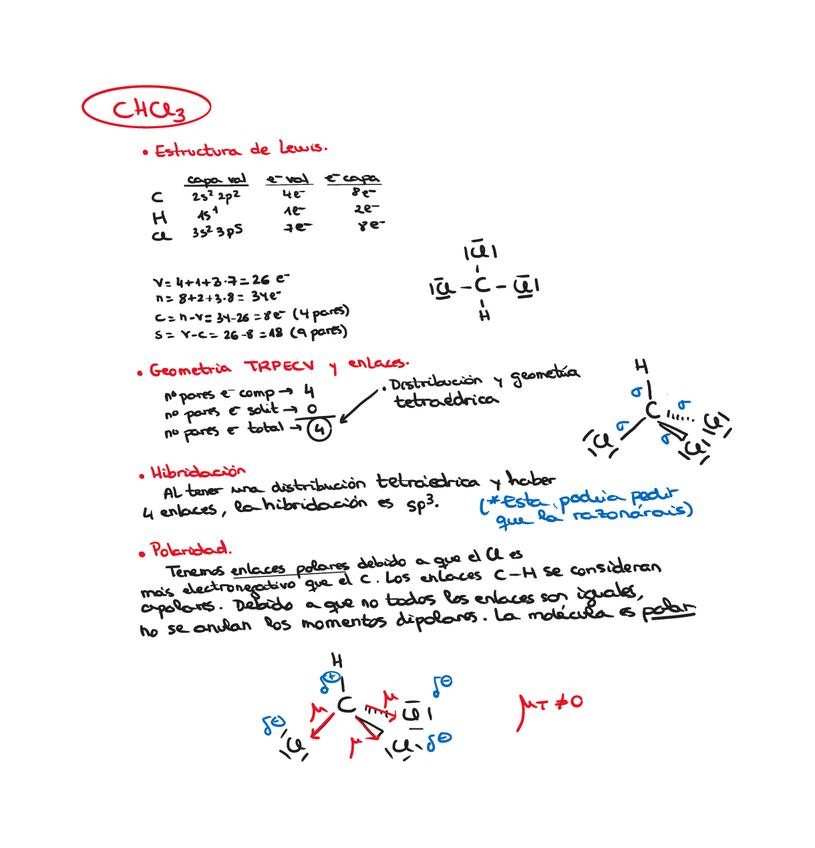 CHCl₃
• Estructura de Lewis.
capa val e⁻ val e⁻ capa
C 2s² 2p² 4e⁻ 8e⁻
H 1s¹ 1e⁻ 2e⁻
Cl 3s² 3p5 7e⁻ 8e⁻
V = 4+1+3·7 = 26 e⁻
n = 8+2+3·8 = 34e⁻
C = n-V = 34-26 = 8e⁻ (4 pares)
S = V-C = 26-8 = 18 (9 pares)
|Cl|
|Cl - C - Cl|
H
• Geometría TRPECV y enlaces.
nº pares e⁻ comp → 4
no pares e⁻ solit → 0
no pares e⁻ total → 4
• Distribución y geometría
tetraédrica
H
σ
C
σ σ σ
Cl Cl Cl
• Hibridación
Al tener una distribución tetraédrica y haber
4 enlaces, la hibridación es sp³.
(*Esta podría pedir
que la razonárais)
• Polaridad.
Tenemos enlaces polares debido a que el Cl es
más electronegativo que el C. Los enlaces C-H se consideran
apolares. Debido a que no todos los enlaces son iguales,
no se anulan los momentos dipolares. La molécula es polar
H
δ⊕
C
μ μ μ
δ⊖ Cl
Cl| δ⊖
Cl δ⊖
μT ≠ 0